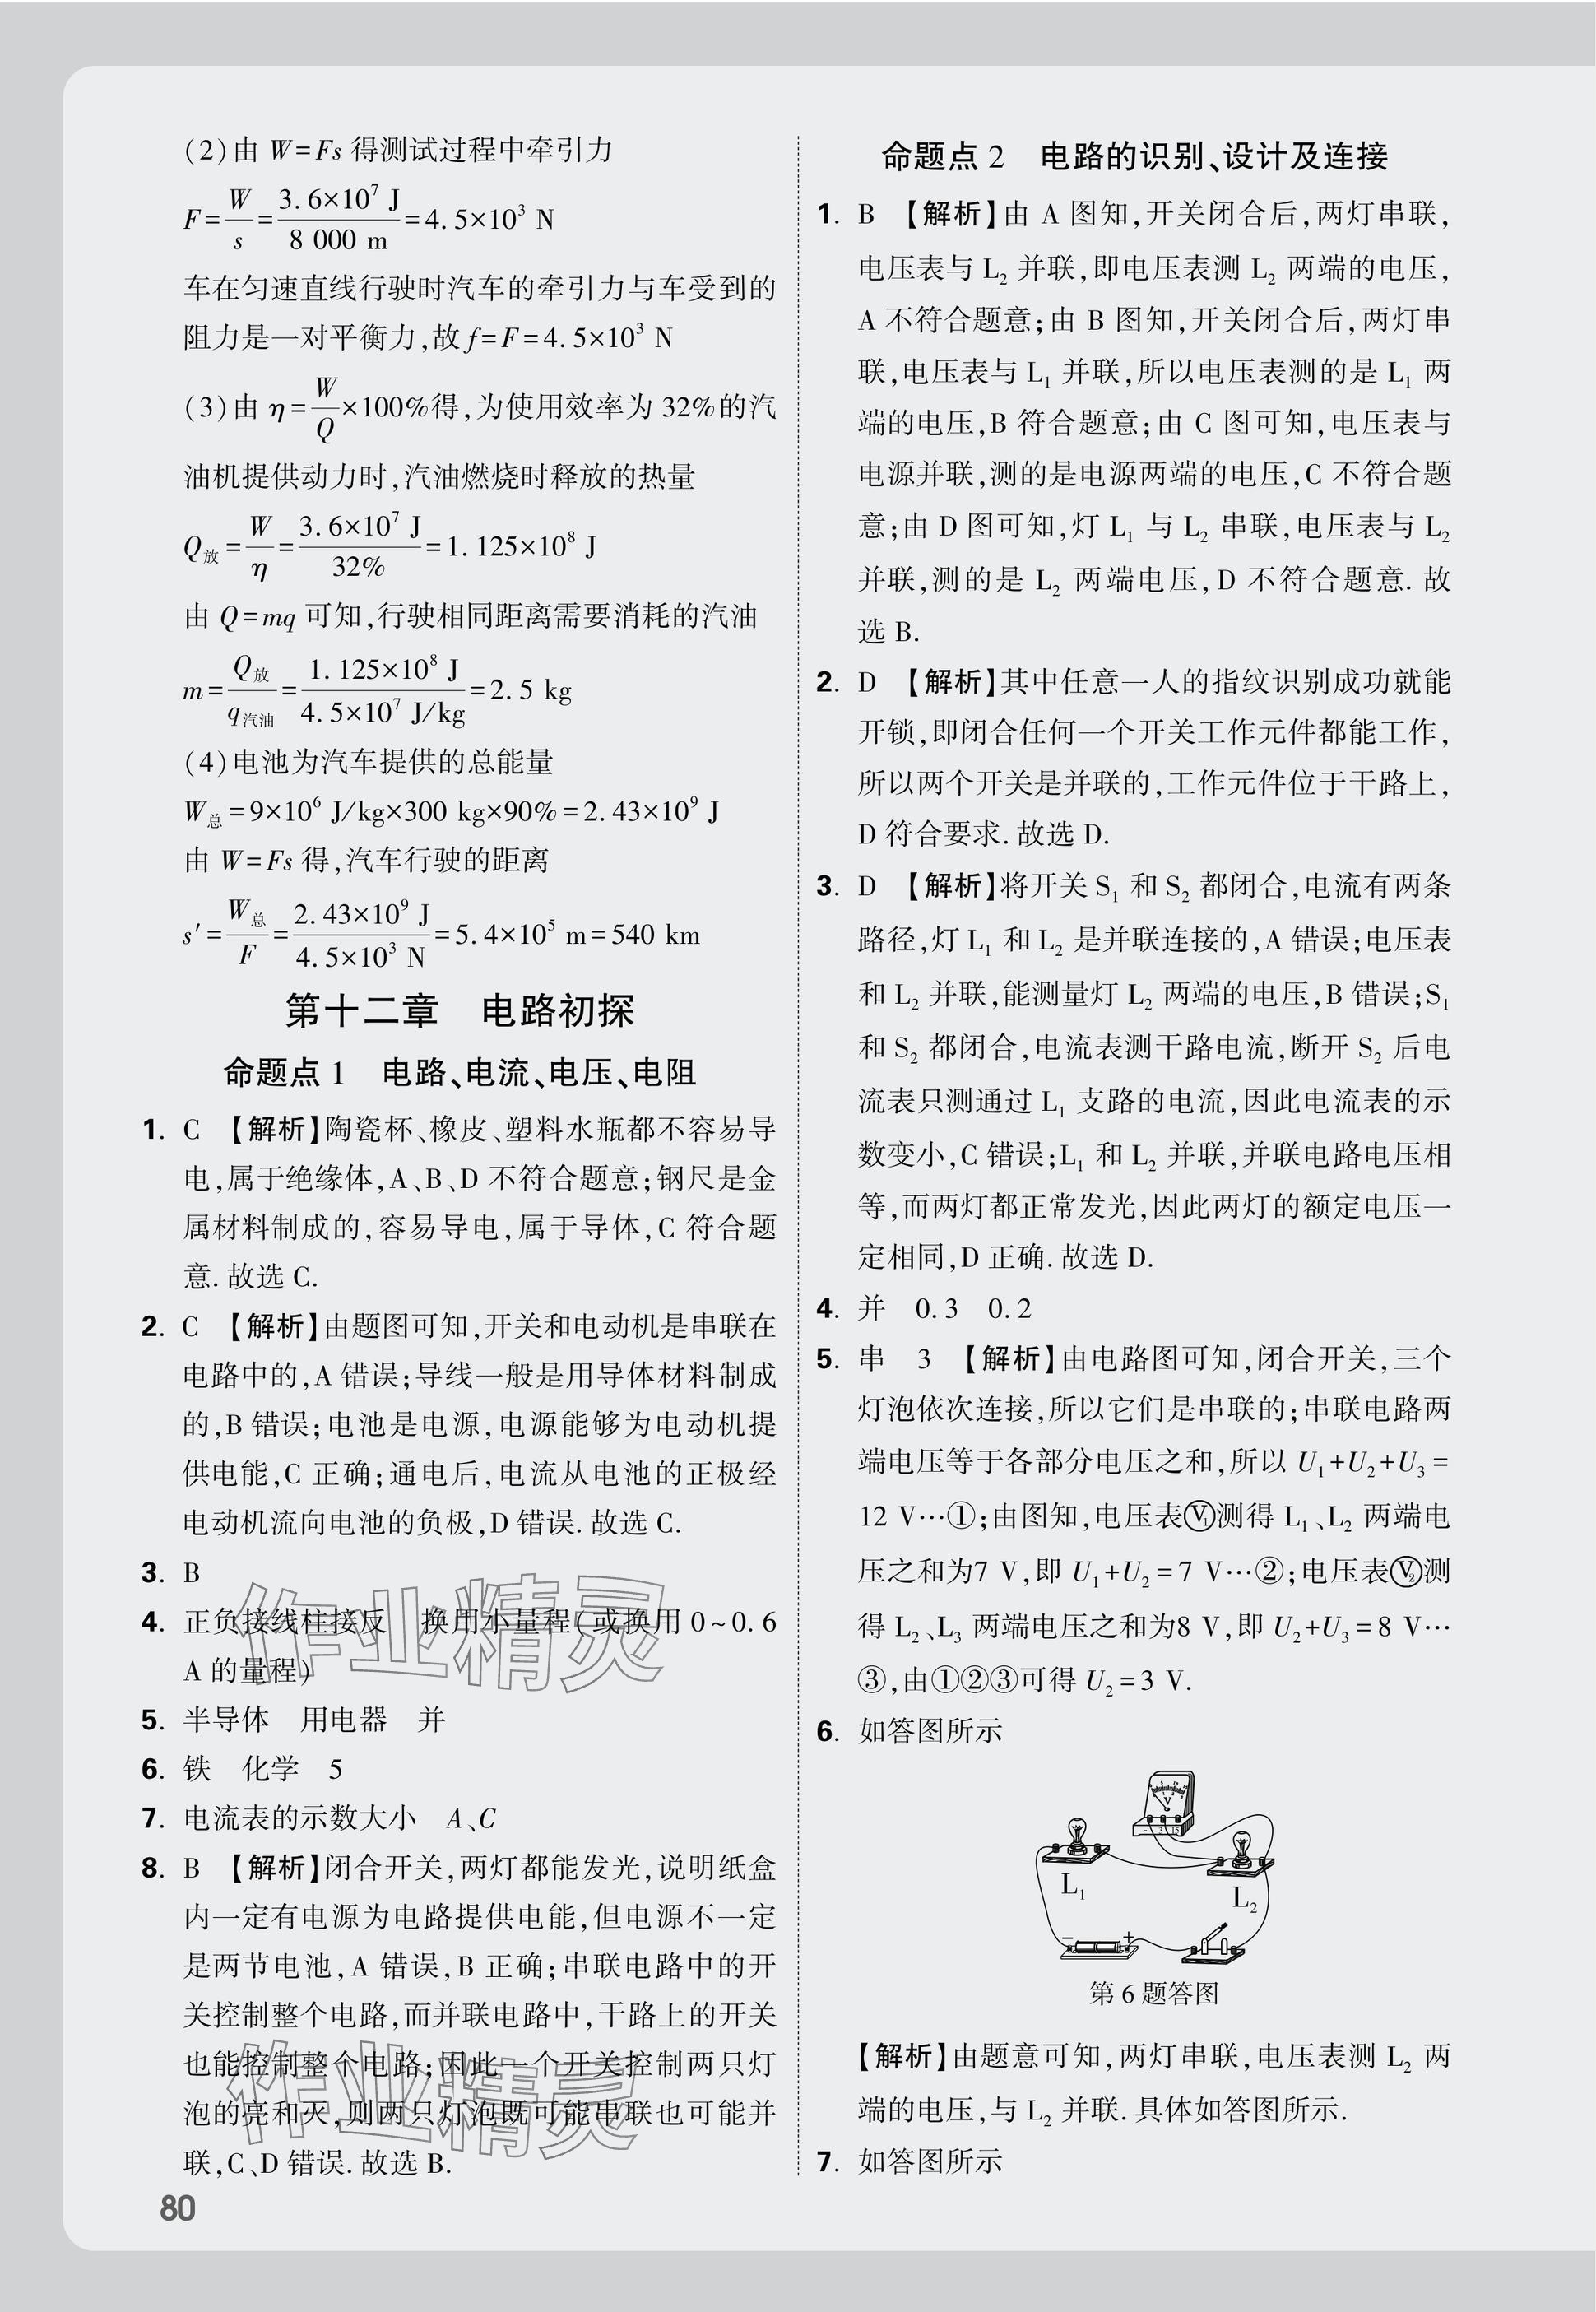 (2)由 W=Fs 得测试过程中牵引力
F=W/s=3.6×10⁷ J/8 000 m=4.5×10³ N
车在匀速直线行驶时汽车的牵引力与车受到的
阻力是一对平衡力,故f=F=4.5×10³ N
(3)由 η=W/Q×100%得,为使用效率为 32%的汽
油机提供动力时,汽油燃烧时释放的热量
Q放=W/η=3.6×10⁷ J/32%=1.125×10⁸ J
由 Q=mq 可知,行驶相同距离需要消耗的汽油
m=Q放/q汽油=1.125×10⁸ J/4.5×10⁷ J/kg=2.5 kg
(4)电池为汽车提供的总能量
W总=9×10⁶ J/kg×300 kg×90%=2.43×10⁹ J
由 W=Fs 得,汽车行驶的距离
s′=W总/F=2.43×10⁹ J/4.5×10³ N=5.4×10⁵ m=540 km
第十二章 电路初探
命题点 1 电路、电流、电压、电阻
1. C 【解析】陶瓷杯、橡皮、塑料水瓶都不容易导
电,属于绝缘体,A、B、D 不符合题意;钢尺是金
属材料制成的,容易导电,属于导体,C 符合题
意.故选 C.
2. C 【解析】由题图可知,开关和电动机是串联在
电路中的,A 错误;导线一般是用导体材料制成
的,B 错误;电池是电源,电源能够为电动机提
供电能,C 正确;通电后,电流从电池的正极经
电动机流向电池的负极,D 错误.故选 C.
3. B
4. 正负接线柱接反 换用小量程(或换用 0~0.6
A 的量程)
5. 半导体 用电器 并
6. 铁 化学 5
7. 电流表的示数大小 A、C
8. B 【解析】闭合开关,两灯都能发光,说明纸盒
内一定有电源为电路提供电能,但电源不一定
是两节电池,A 错误,B 正确;串联电路中的开
关控制整个电路,而并联电路中,干路上的开关
也能控制整个电路;因此一个开关控制两只灯
泡的亮和灭,则两只灯泡既可能串联也可能并
联,C、D 错误.故选 B.
作业精灵
作业精灵
80
命题点 2 电路的识别、设计及连接
1. B 【解析】由 A 图知,开关闭合后,两灯串联,
电压表与 L₂ 并联,即电压表测 L₂ 两端的电压,
A 不符合题意;由 B 图知,开关闭合后,两灯串
联,电压表与 L₁ 并联,所以电压表测的是 L₁ 两
端的电压,B 符合题意;由 C 图可知,电压表与
电源并联,测的是电源两端的电压,C 不符合题
意;由 D 图可知,灯 L₁ 与 L₂ 串联,电压表与 L₂
并联,测的是 L₂ 两端电压,D 不符合题意.故
选 B.
2. D 【解析】其中任意一人的指纹识别成功就能
开锁,即闭合任何一个开关工作元件都能工作,
所以两个开关是并联的,工作元件位于干路上,
D 符合要求.故选 D.
3. D 【解析】将开关 S₁ 和 S₂ 都闭合,电流有两条
路径,灯 L₁ 和 L₂ 是并联连接的,A 错误;电压表
和 L₂ 并联,能测量灯 L₂ 两端的电压,B 错误;S₁
和 S₂ 都闭合,电流表测干路电流,断开 S₂ 后电
流表只测通过 L₁ 支路的电流,因此电流表的示
数变小,C 错误;L₁ 和 L₂ 并联,并联电路电压相
等,而两灯都正常发光,因此两灯的额定电压一
定相同,D 正确.故选 D.
4. 并 0.3 0.2
5. 串 3 【解析】由电路图可知,闭合开关,三个
灯泡依次连接,所以它们是串联的;串联电路两
端电压等于各部分电压之和,所以 U₁+U₂+U₃=
12 V…①;由图知,电压表Ⓥ₁测得 L₁、L₂ 两端电
压之和为7 V,即 U₁+U₂=7 V…②;电压表Ⓥ₂测
得 L₂、L₃ 两端电压之和为8 V,即 U₂+U₃=8 V…
③,由①②③可得 U₂=3 V.
6. 如答图所示
V
- 3 15
L₁
L₂
- +
第 6 题答图
【解析】由题意可知,两灯串联,电压表测 L₂ 两
端的电压,与 L₂ 并联.具体如答图所示.
7. 如答图所示